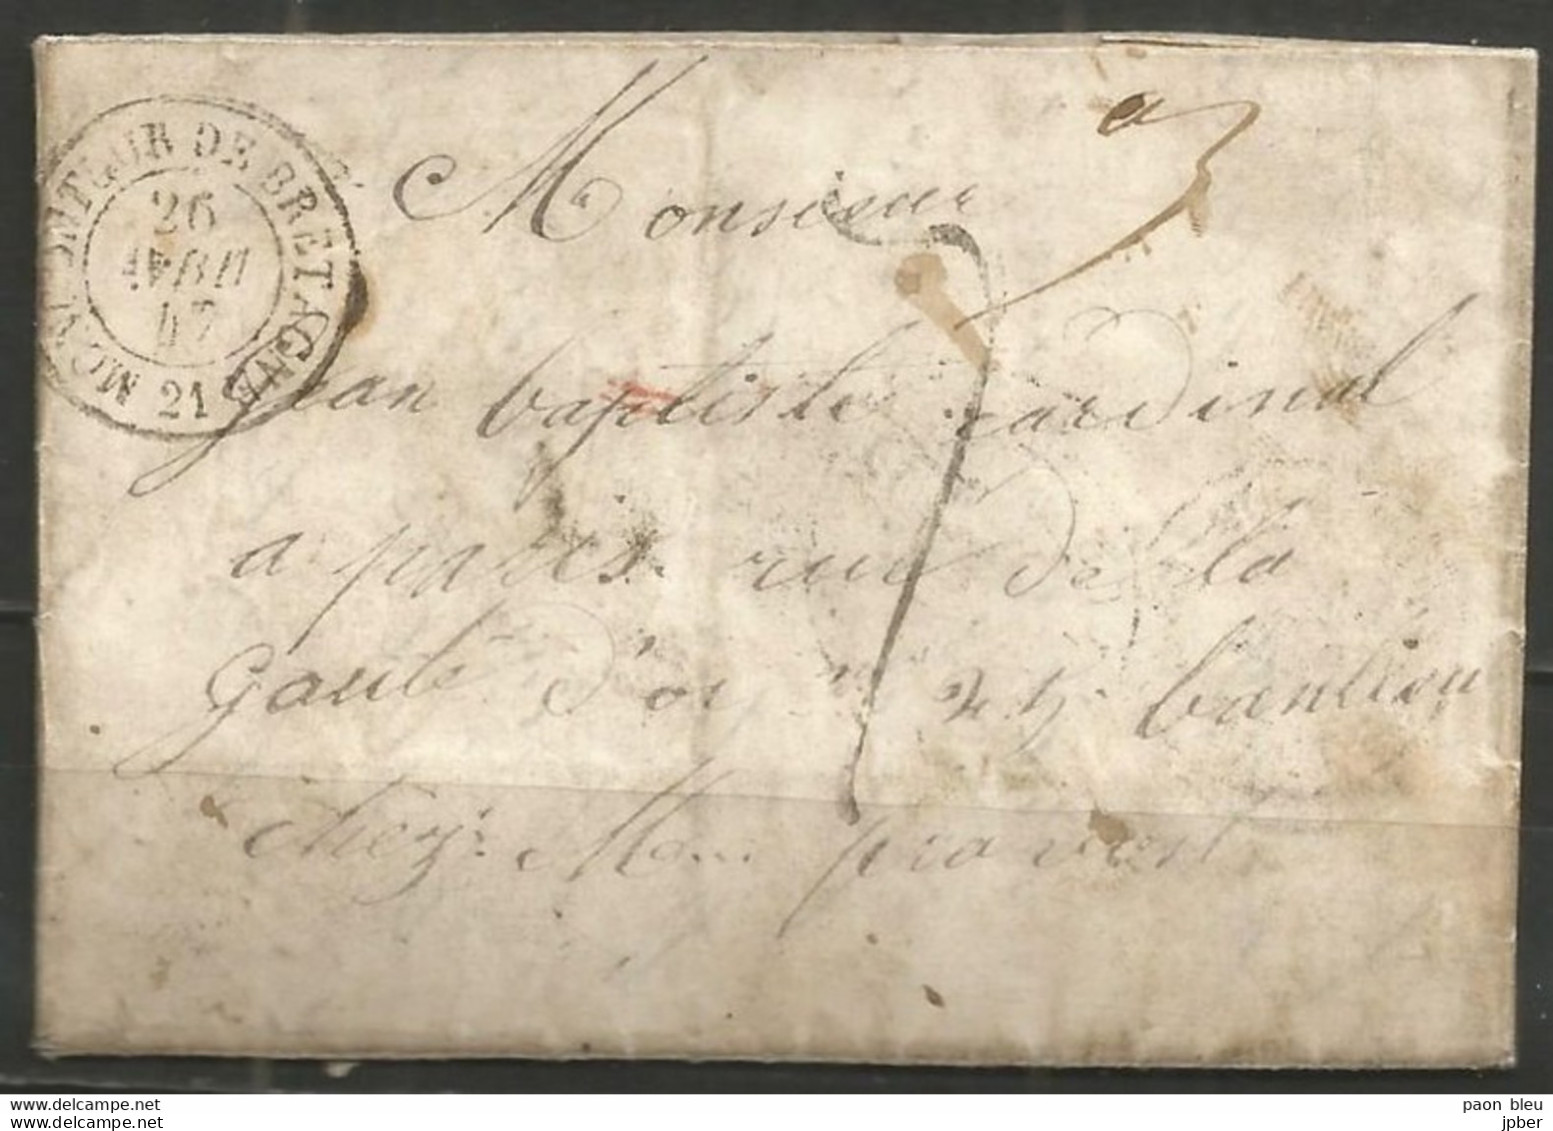 MONCONTOUR DE BRETAGNE 21
26
AVRIL
47
a 3
Monsieur
7
jean baptiste cardinal
a paris. rue de la
Gaité d'or n 25 banlieu
chez. M provost
paon bleu
jpber